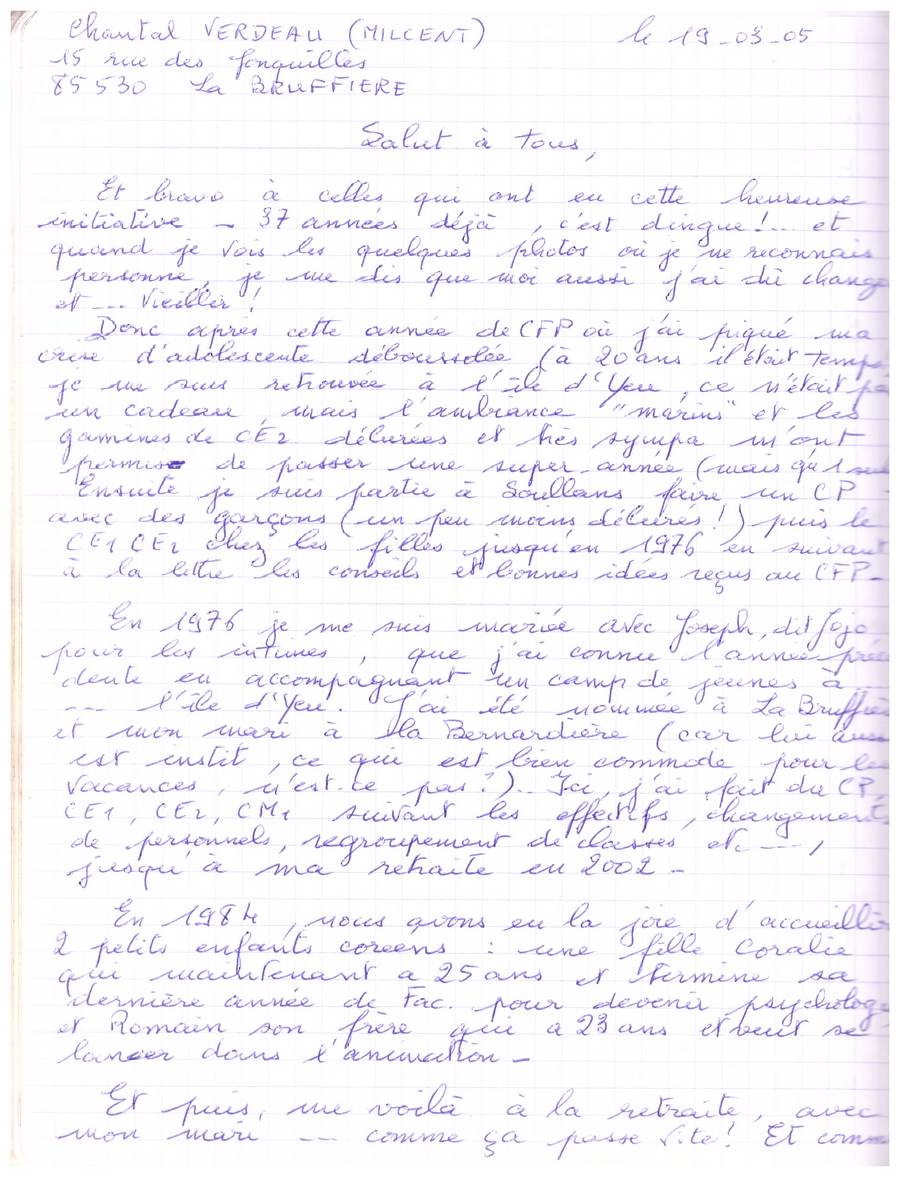 Chantal VERDEAU (MILCENT) le 19-03-05
15 rue des Jonquilles
85530 La BRUFFIERE
Salut à tous,
Et bravo à celles qui ont eu cette heureuse
initiative - 37 années déjà, c'est dingue!... et
quand je vois les quelques photos où je ne reconnais
personne, je me dis que moi aussi j'ai dû change
et ... vieillir!
Donc après cette année de CFP où j'ai piqué ma
crise d'adolescente déboussolée (à 20 ans il était temps
je me suis retrouvée à l'île d'Yeu, ce n'était pa
un cadeau, mais l'ambiance "marins" et les
gamines de CE2 délurées et très sympa m'ont
permis de passer une super-année (mais qu'1
Ensuite je suis partie à Soullans faire un CP
avec des garçons (un peu moins délurés!) puis le
CE1 CE2 chez les filles jusqu'en 1976 en suivant
à la lettre les conseils et bonnes idées reçus au CFP-
En 1976 je me suis mariée avec Joseph, dit Jojo
pour les intimes, que j'ai connu l'année précé
dente en accompagnant un camp de jeunes à ...
... l'île d'Yeu. J'ai été nommée à La Bruffiè
et mon mari à la Bernardière (car lui aussi
est instit, ce qui est bien commode pour les
vacances, n'est-ce pas?). Ici, j'ai fait du CP,
CE1, CE2, CM1 suivant les effectifs, changements
de personnels, regroupement de classes etc ---,
jusqu'à ma retraite en 2002 -
En 1984, nous avons eu la joie d'accueilli
2 petits enfants coreens : une fille Coralie
qui maintenant a 25 ans et termine sa
dernière année de Fac. pour devenir psycholog
et Romain son frère qui a 23 ans et veut se
lancer dans l'animation -
Et puis, me voilà à la retraite, avec
mon mari --- comme ça passe vite! Et comm